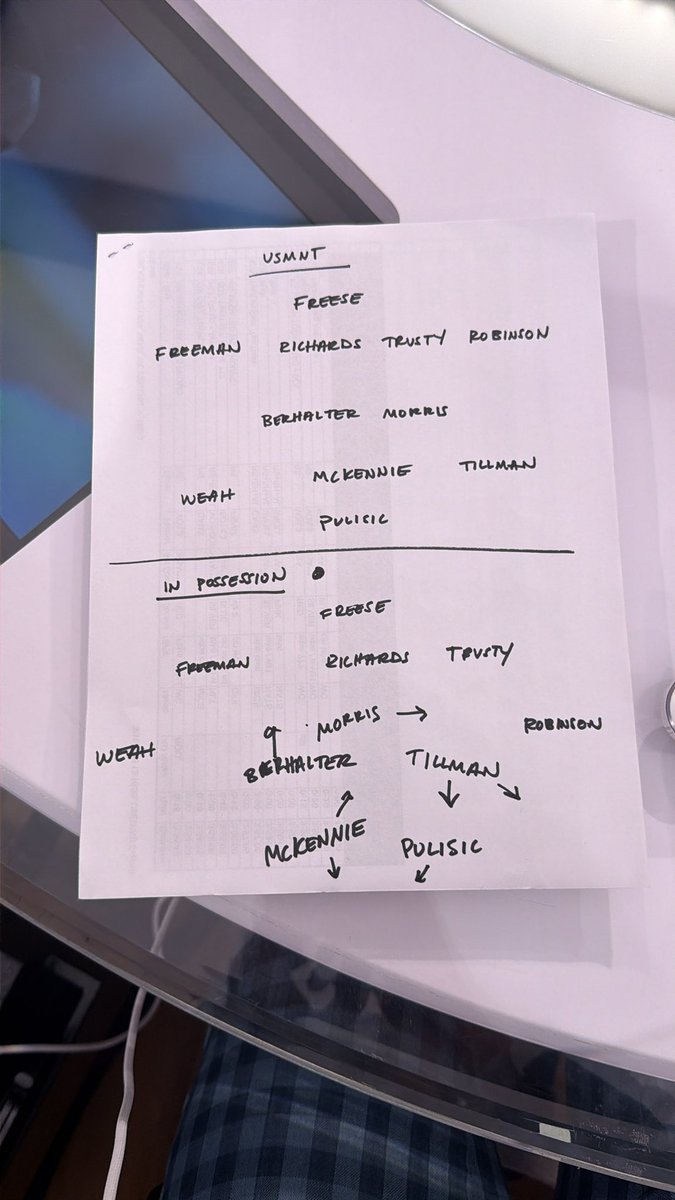 USMNT
FREESE
FREEMAN RICHARDS TRUSTY ROBINSON
BERHALTER MORRIS
MCKENNIE TILLMAN
WEAH
PULISIC
IN POSSESSION
FREESE
FREEMAN RICHARDS TRUSTY
MORRIS ROBINSON
WEAH BERHALTER TILLMAN
MCKENNIE PULISIC